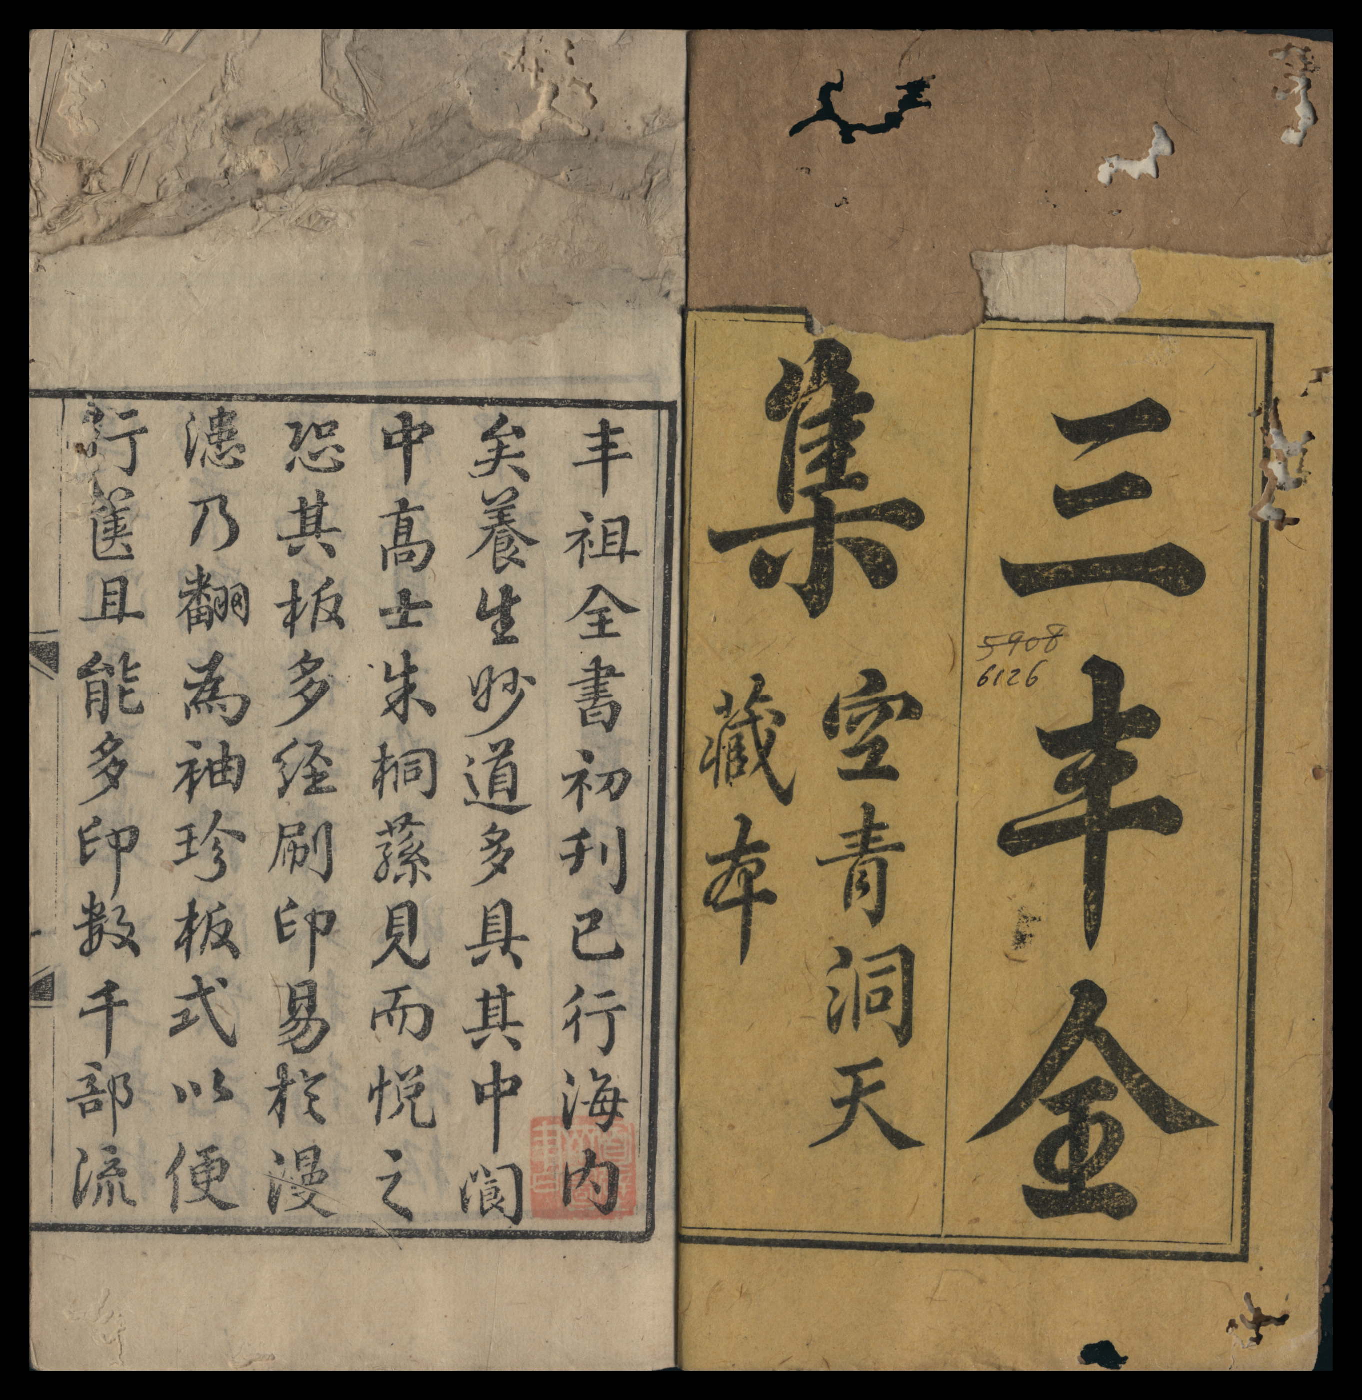 三丰全
集
空青洞天
藏本
5908
6126
丰祖全書初刊已行海内
矣養生妙道多具其中閬
中髙士朱桐蓀見而悅之
恐其板多経刷印易扵漫
漶乃翻為袖珍板式以便
行匧且能多印数千部流